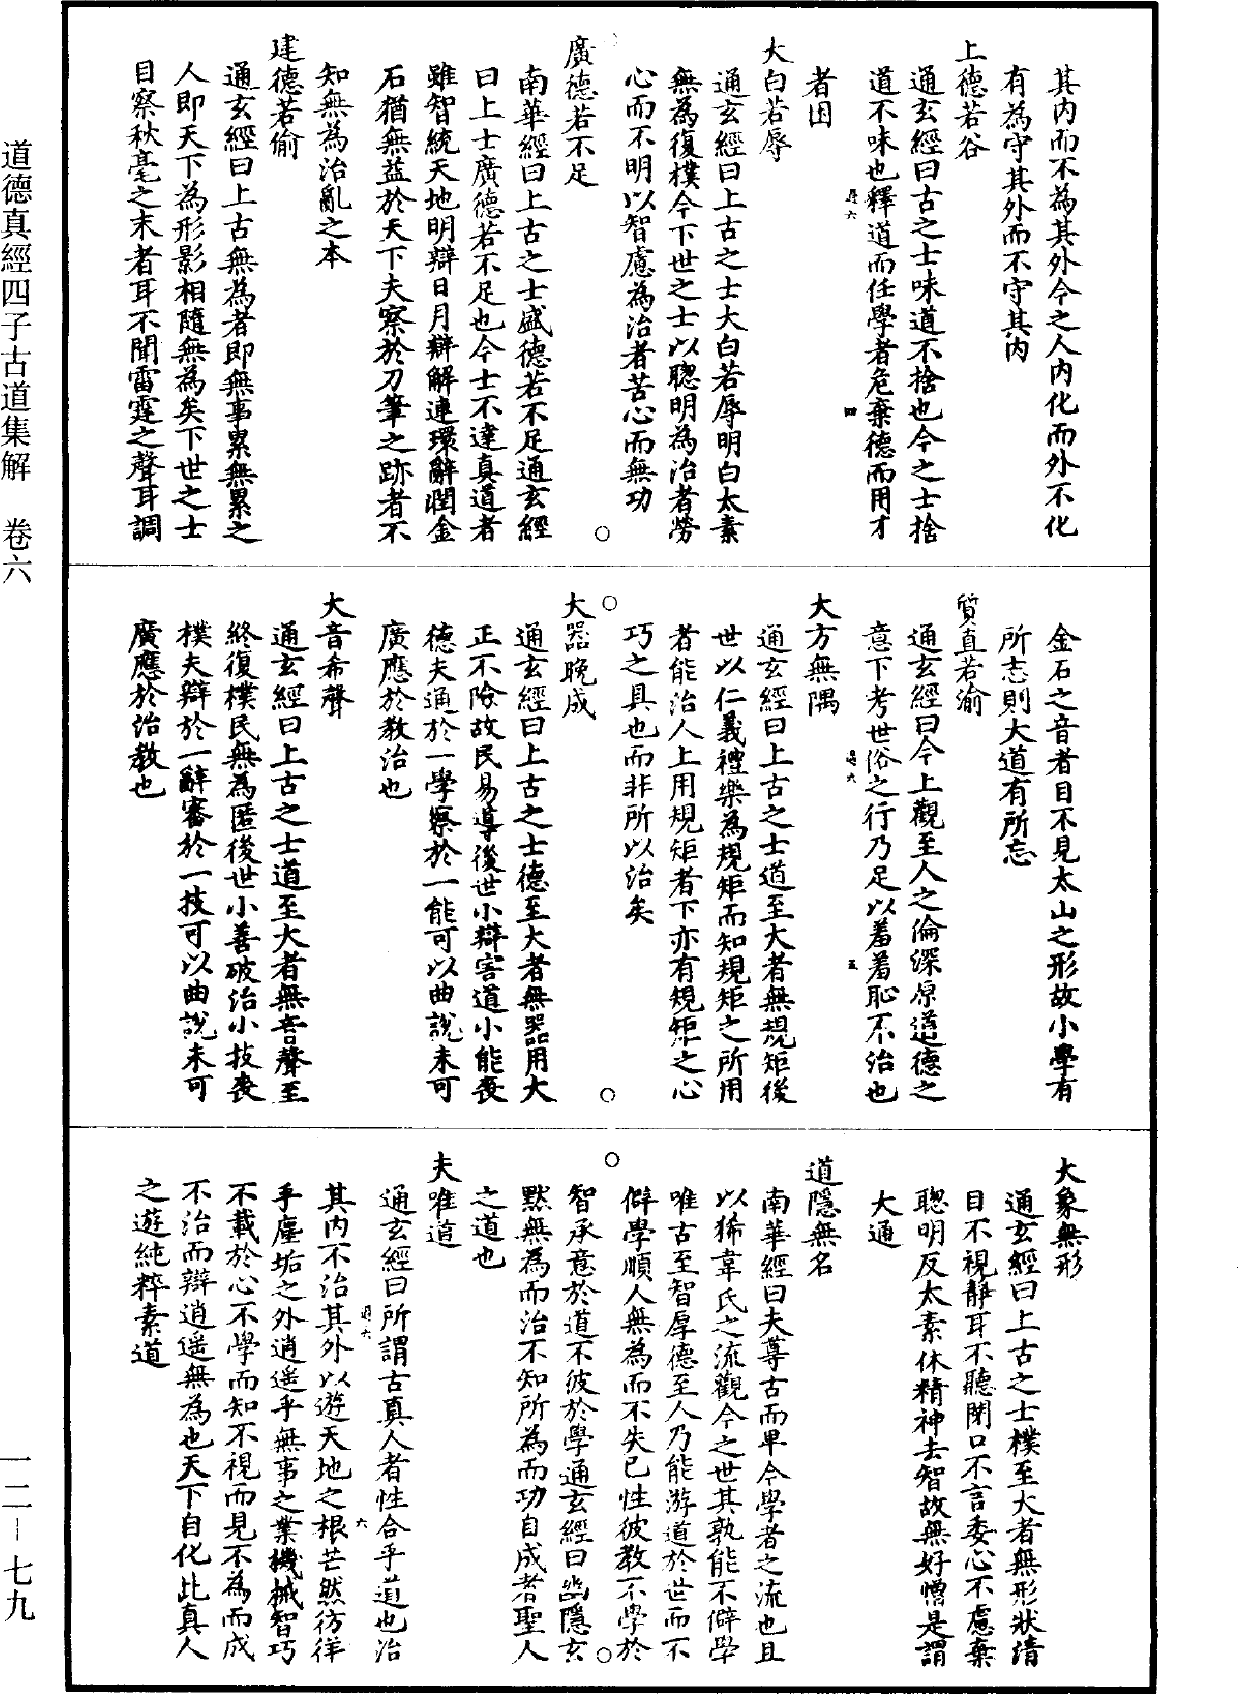 其內而不為其外今之人內化而外不化
有為守其外而不守其內
上德若谷
通玄經曰古之士味道不捨也今之士捨
道不味也釋道而任學者危棄德而用才
者困
大白若辱
通玄經曰上古之士大白若辱明白太素
無為復樸今下世之士以聰明為治者勞
心而不明以智慮為治者苦心而無功
廣德若不足
南華經曰上古之士盛德若不足通玄經
曰上士廣德若不足也今士不達真道者
雖智統天地明辯日月辯解連環辭潤金
石猶無益於天下夫察於刀筆之跡者不
知無為治亂之本
建德若偷
通玄經曰上古無為者即無事累無累之
人即天下為形影相隨無為矣下世之士
目察秋毫之末者耳不聞雷霆之聲耳調
金石之音者目不見太山之形故小學有
所志則大道有所忘
質直若渝
通玄經曰今上觀至人之倫深原道德之
意下考世俗之行乃足以羞羞恥不治也
大方無隅
通玄經曰上古之士道至大者無規矩後
世以仁義禮樂為規矩而知規矩之所用
者能治人上用規矩者下亦有規矩之心
巧之具也而非所以治矣
大器晚成
通玄經曰上古之士德至大者無器用大
正不險故民易導後世小辯害道小能喪
德夫通於一學察於一能可以曲說未可
廣應於教治也
大音希聲
通玄經曰上古之士道至大者無音聲至
終復樸民無為匿後世小善破治小技喪
樸夫辯於一辭審於一技可以曲說未可
廣應於治教也
大象無形
通玄經曰上古之士樸至大者無形狀清
目不視靜耳不聽閉口不言委心不慮棄
聰明反太素休精神去智故無好憎是謂
大通
道隱無名
南華經曰夫尊古而卑今學者之流也且
以狶韋氏之流觀今之世其孰能不僻學
唯古至智厚德至人乃能游道於世而不
僻學順人無為而不失已性彼教不學於
智承意於道不彼於學通玄經曰幽隱玄
默無為而治不知所為而功自成者聖人
之道也
夫唯道
通玄經曰所謂古真人者性合乎道也治
其內不治其外以遊天地之根芒然彷徉
乎塵垢之外逍遙乎無事之業機械智巧
不載於心不學而知不視而見不為而成
不治而辯逍遙無為也天下自化此真人
之遊純粹素道
道德真經四子古道集解 卷六
一二-七九